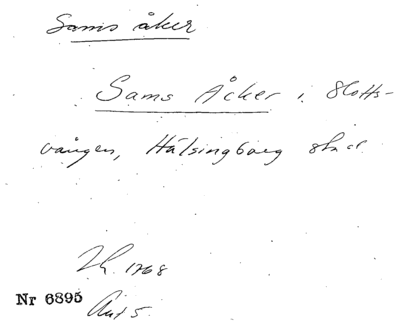 Sams åker
Sams Åker i Slotts-
vången, Hälsingborg stad
Lh. 1768
Nr 6895
Akt 5